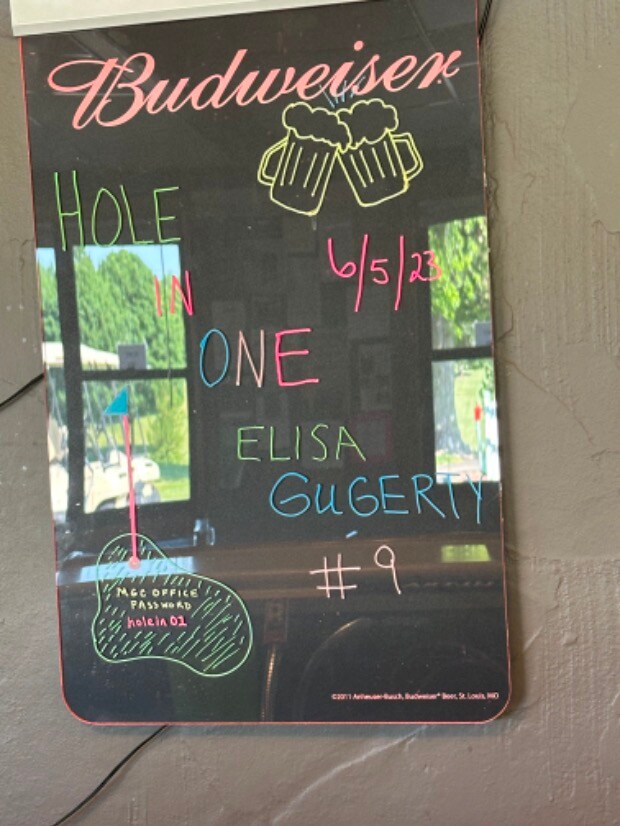 Budweiser
HOLE
IN
6/5/23
ONE
ELISA
GUGERTY
#9
MGC OFFICE
PASSWORD
holein01
©2011 Anheuser-Busch, Budweiser® Beer, St. Louis, MO